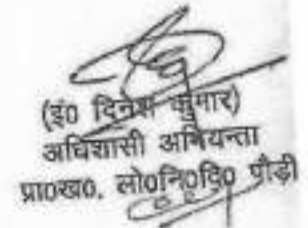 (इं0 दिनेश कुमार)
अधिशासी अभियन्ता
प्रा0ख0, लो0नि0वि0 पौड़ी